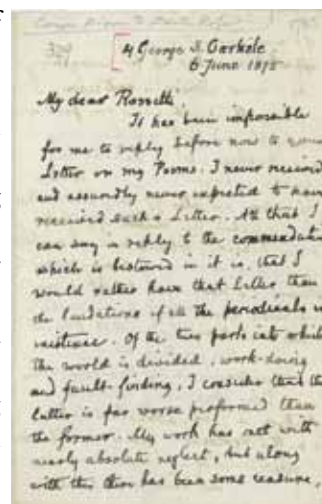 329
4 George St. Carlisle
6 June 1875
My dear Rossetti
It has been impossible
for me to reply before now to your
Letter on my Poems. I never received
and assuredly never expected to have
received such a Letter. All that I
can say in reply to the commendation
which is bestowed in it is, that I
would rather have that Letter than
the laudations of all the periodicals in
existence. Of the two parts into which
the world is divided, work-doing
and fault-finding, I consider that the
latter is far worse performed than
the former. My work has met with
nearly absolute neglect, but along
with this there has been some censure,